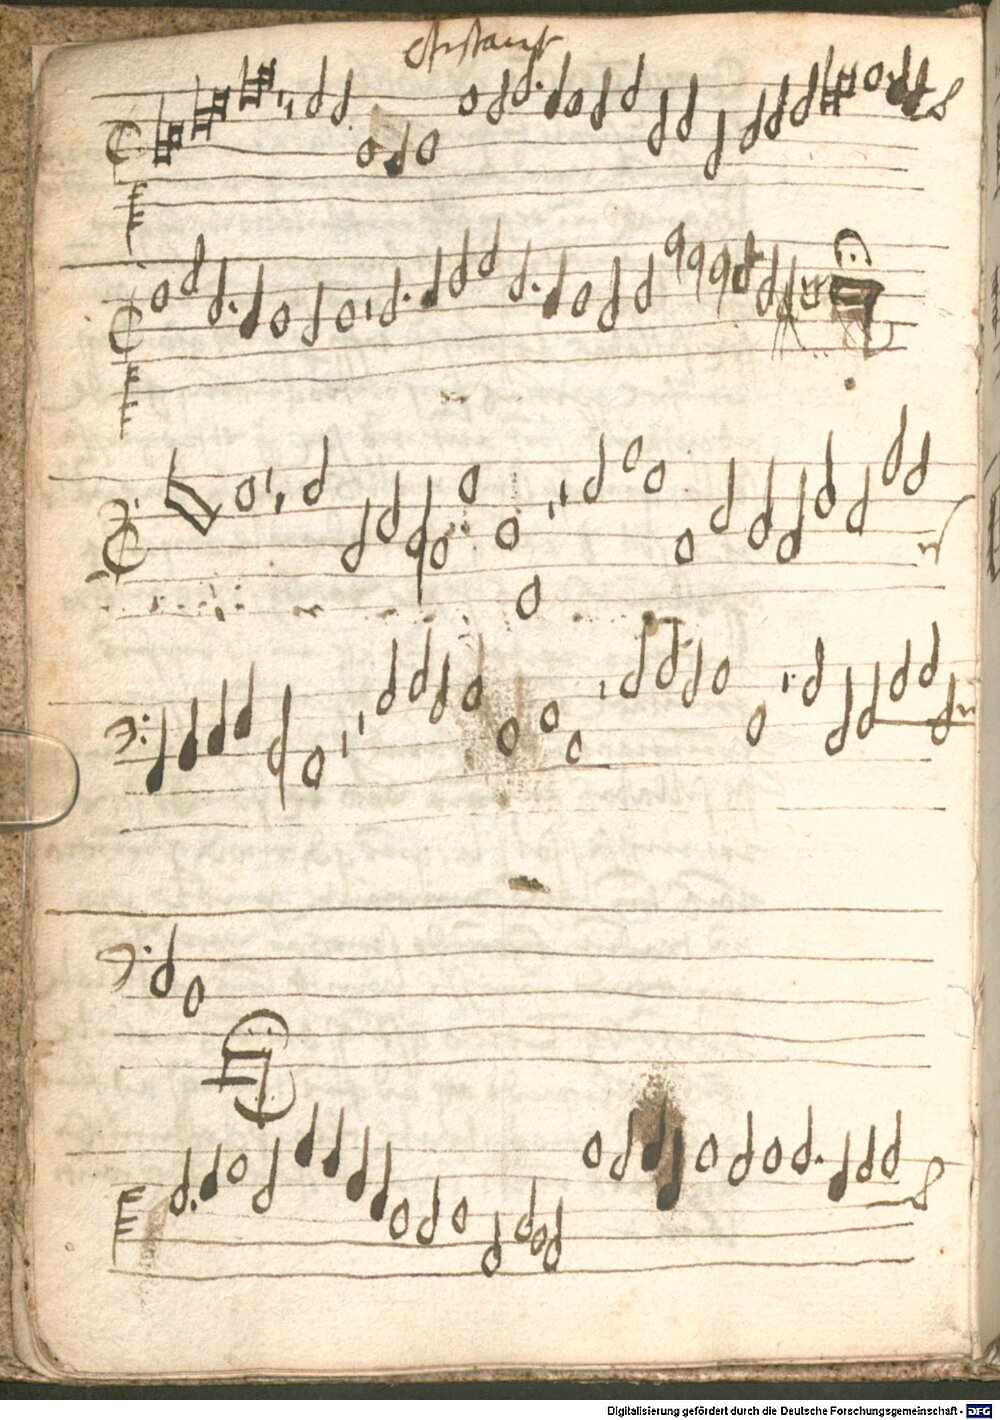 Digitalisierung gefördert durch die Deutsche Forschungsgemeinschaft - DFG